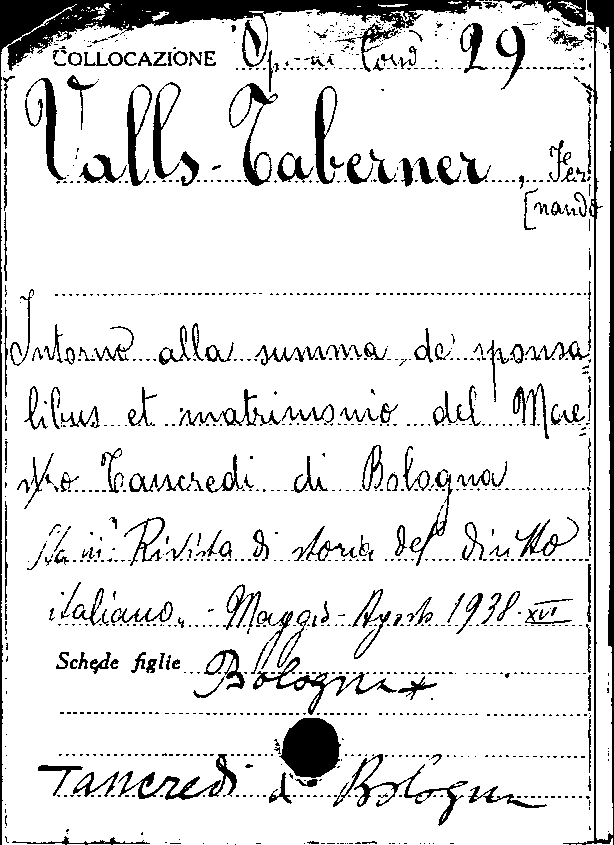 COLLOCAZIONE Op. 29
Valls-Taberner, Fer
[nando
Intorno alla summa de sponsa=
libus et matrimonio del Mae=
stro Tancredi di Bologna
Sta in: "Rivista di storia del diritto
italiano" - Maggio-Agosto 1938-XVI
Schede figlie Bologna x
Tancredi di Bologna